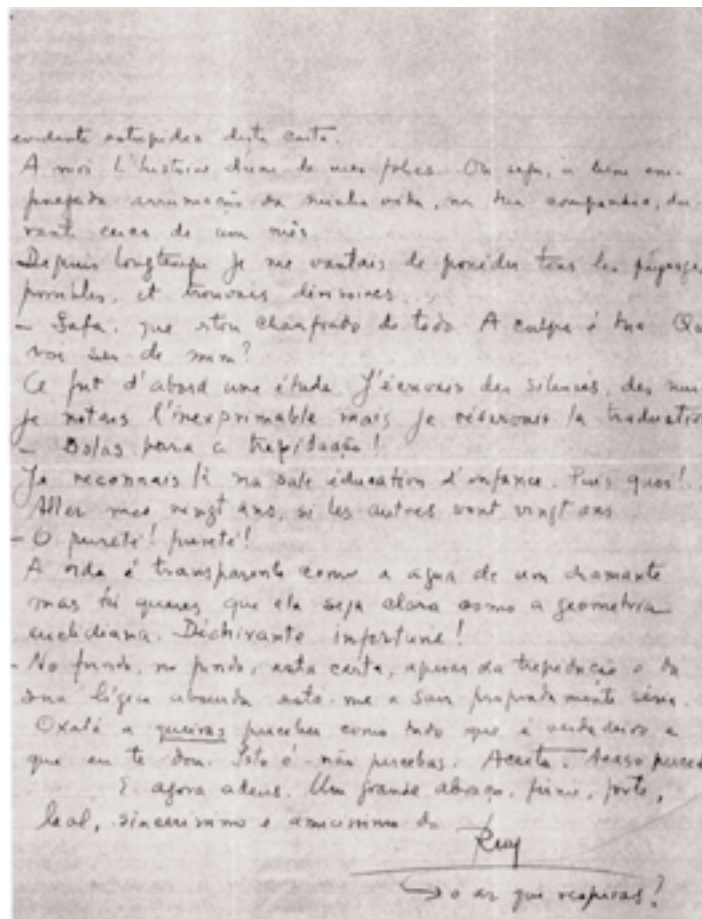 evidente estupidez desta carta.
A moi. L'histoire d'une de mes folies. Ou seja, a bem em-
pregada arrumação da minha vida, na tua companhia, du-
rante cerca de um mês.
Depuis longtemps je me vantais de posséder tous les paysages
possibles, et trouvais dérisoires...
- Safa, que estou chanfrado de todo. A culpa é tua. Que
vai ser de mim?
Ce fut d'abord une étude. J'écrivais des silences, des nuits
je notais l'inexprimable mais je réservais la traduction
- Bolas para a trepidação!
Je reconnais là ma sale éducation d'enfance. Puis quoi!..
Aller mes vingt ans, si les autres vont vingt ans
- O pureté! pureté!
A vida é transparente como a água de um diamante
mas tu queres que ela seja clara como a geometria
euclidiana. Déchirante infortune!
- No fundo, no fundo, esta carta, apesar da trepidação e da
sua lógica absurda está-me a sair profundamente séria.
Oxalá a queiras perceber como tudo que é verdadeiro e
que eu te dou. Isto é - não percebas. Aceita. Acaso
E agora adeus. Um grande abraço, firme, forte,
leal, sincerissimo e amicissimo do
Ruy
→ o ar que respiras?